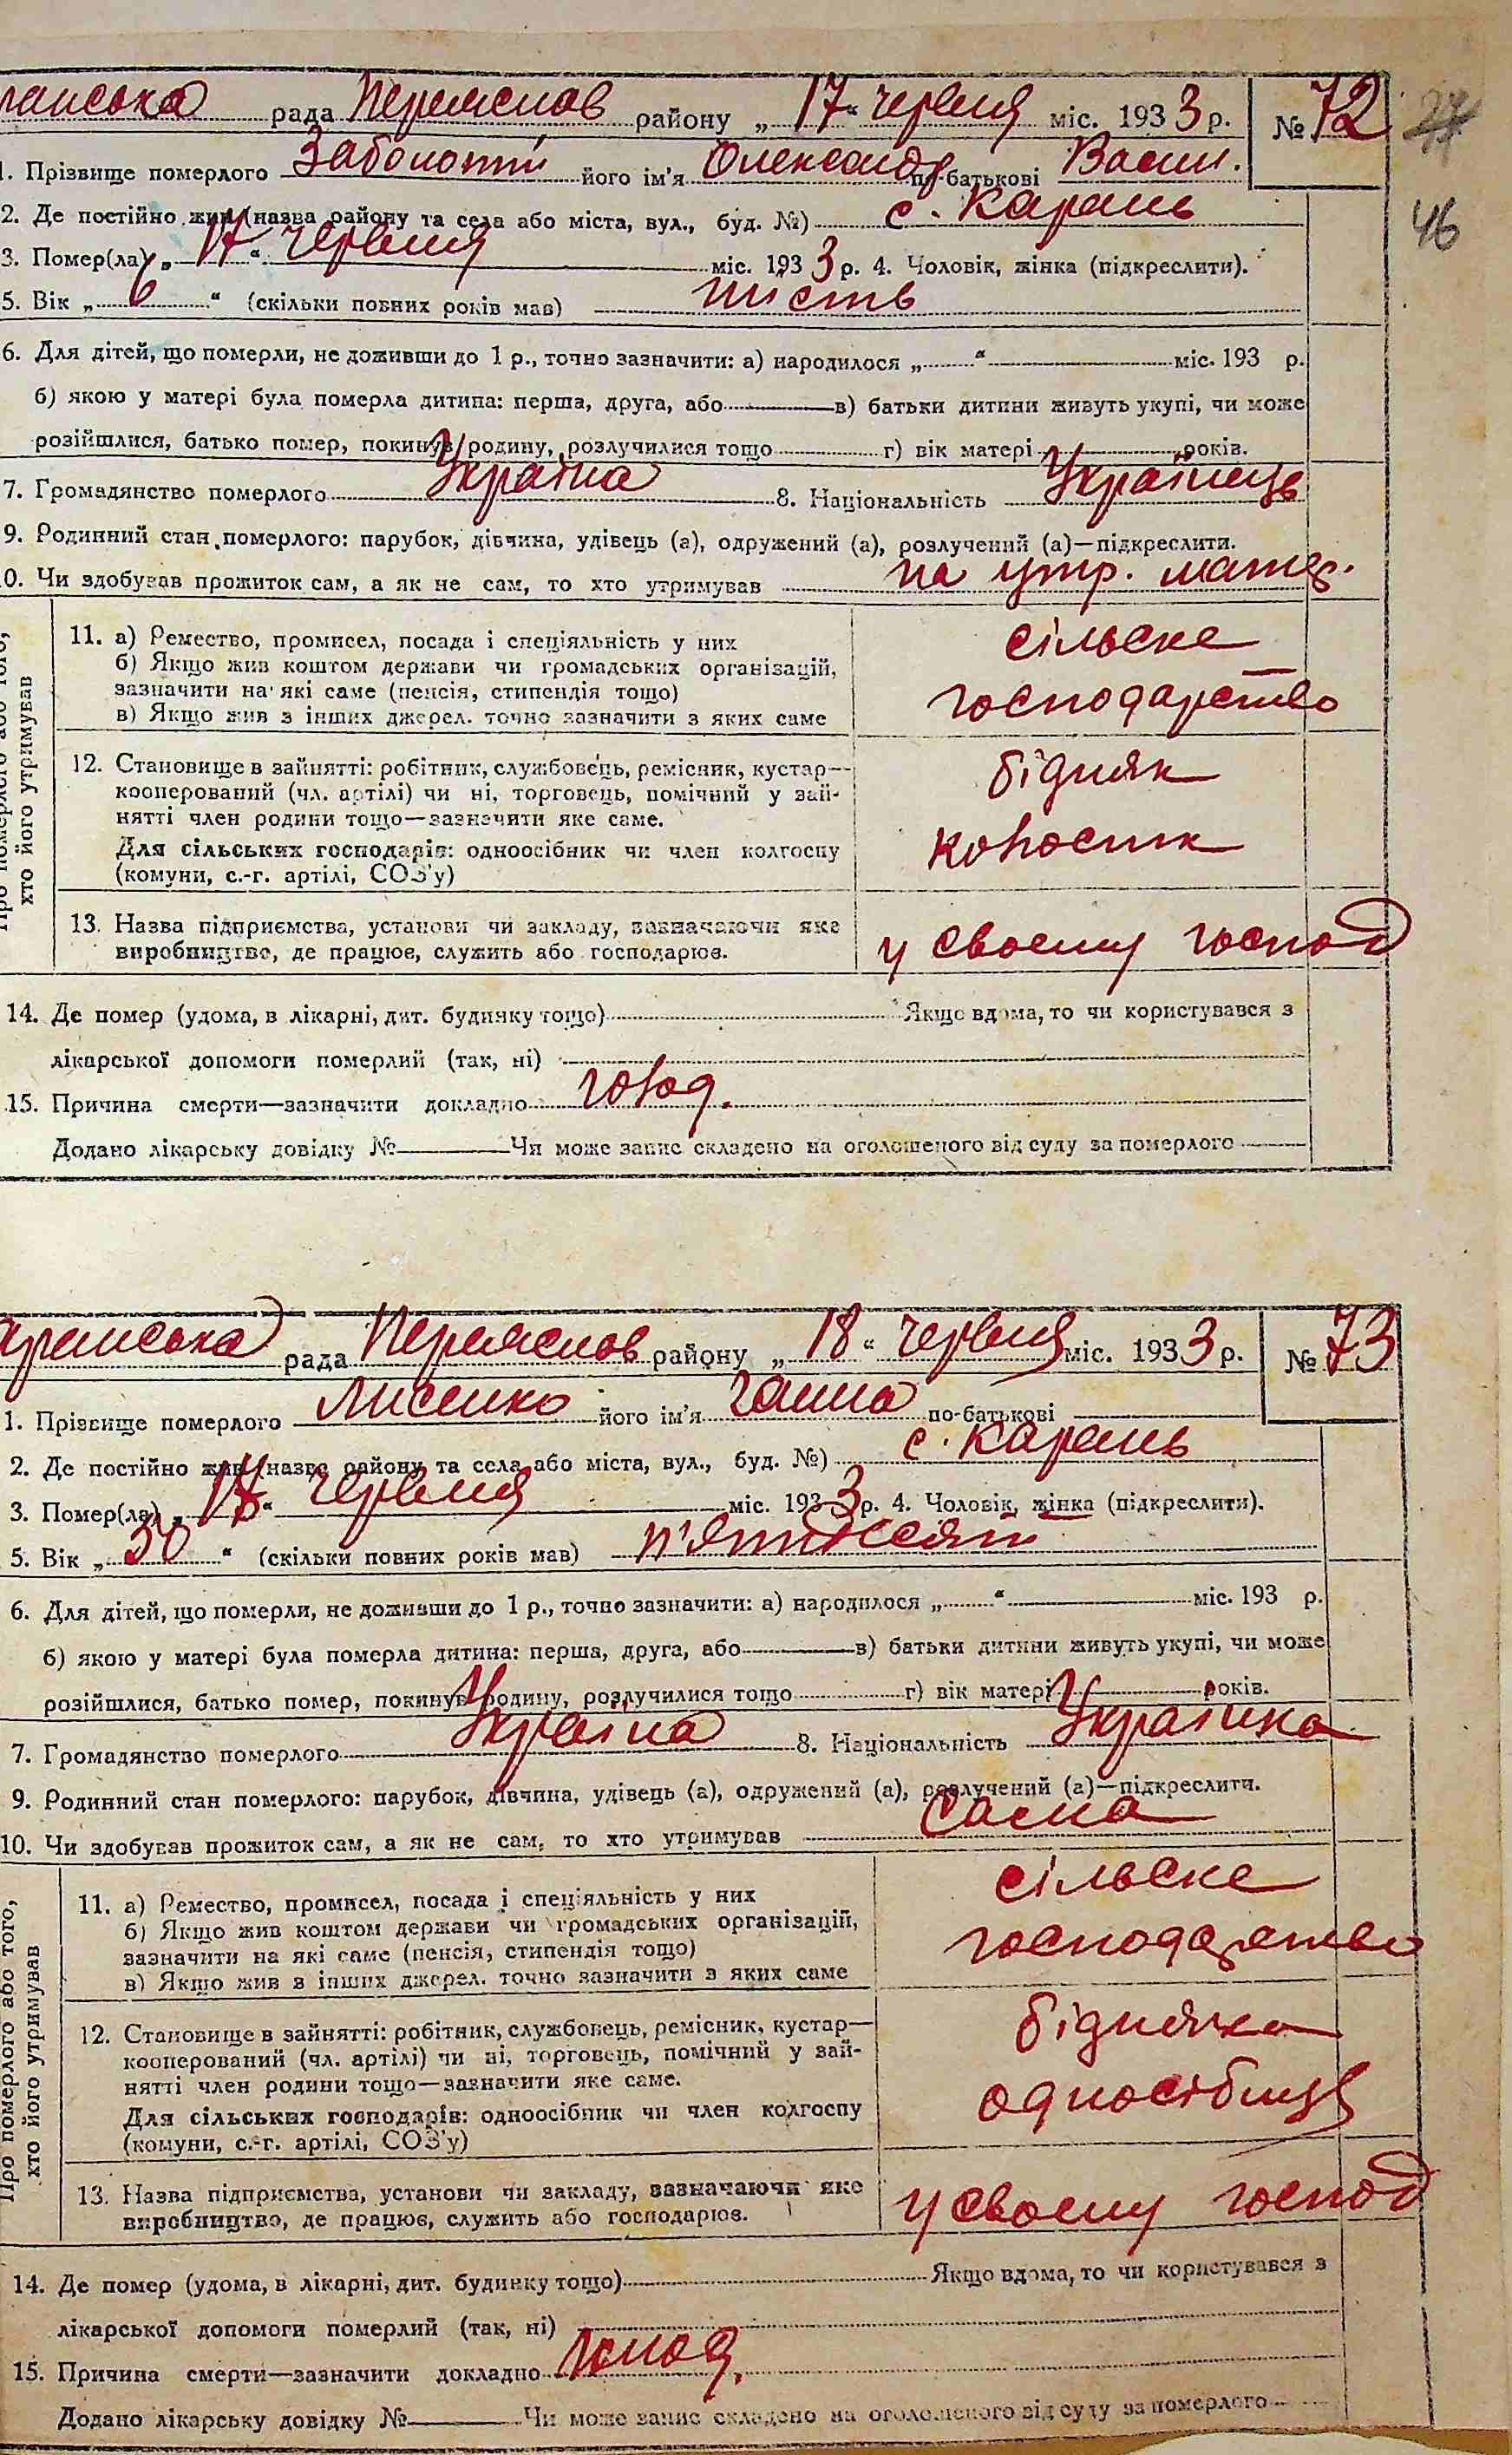 ранська рада Переяслов району „17“ червня міс. 1933 р. № 72
27
1. Прізвище померлого Заболотній його ім'я Олександр по-батькові Васил.
2. Де постійно жив (назва району та села або міста, вул., буд. №) с. Карань
46
3. Помер(ла) „17“ червня міс. 1933 р. 4. Чоловік, жінка (підкреслити).
5. Вік „6“ (скільки повних років мав) шість
6. Для дітей, що померли, не доживши до 1 р., точно зазначити: а) народилося „ “ міс. 193 р.
б) якою у матері була померла дитина: перша, друга, або в) батьки дитини живуть укупі, чи може
розійшлися, батько помер, покинув родину, розлучилися тощо г) вік матері років.
7. Громадянство померлого Україна 8. Національність Українець
9. Родинний стан померлого: парубок, дівчина, удівець (а), одружений (а), розлучений (а)—підкреслити.
10. Чи здобував прожиток сам, а як не сам, то хто утримував на утр. матер.
Про померлого або того,
хто його утримував
11. а) Ремество, промисел, посада і спеціяльність у них
б) Якщо жив коштом держави чи громадських організацій,
зазначити на які саме (пенсія, стипендія тощо)
в) Якщо жив з інших джерел. точно зазначити з яких саме
сільске
господарство
12. Становище в зайнятті: робітник, службовець, ремісник, кустар—
кооперований (чл. артілі) чи ні, торговець, помічний у зай-
нятті член родини тощо—зазначити яке саме.
Для сільських господарів: одноосібник чи член колгоспу
(комуни, с.-г. артілі, СОЗ'у)
бідняк
колосник
13. Назва підприємства, установи чи закладу, зазначаючи яке
виробництво, де працює, служить або господарює.
у своему господ
14. Де помер (удома, в лікарні, дит. будинку тощо) Якщо вдома, то чи користувався з
лікарської допомоги померлий (так, ні)
15. Причина смерти—зазначити докладно голод.
Додано лікарську довідку № Чи може запис складено на оголошеного від суду за померлого
аранська рада Переяслов району „18“ червня міс. 1933 р. № 73
1. Прізвище померлого Лисенко його ім'я Ганна по-батькові
2. Де постійно жив (назва району та села або міста, вул., буд. №) с. Карань
3. Помер(ла) „ “ червня міс. 1933 р. 4. Чоловік, жінка (підкреслити).
5. Вік „50“ (скільки повних років мав) п'ятдесят
6. Для дітей, що померли, не доживши до 1 р., точно зазначити: а) народилося „ “ міс. 193 р.
б) якою у матері була померла дитина: перша, друга, або в) батьки дитини живуть укупі, чи може
розійшлися, батько помер, покинув родину, розлучилися тощо г) вік матері років.
7. Громадянство померлого Україна 8. Національність Українка
9. Родинний стан померлого: парубок, дівчина, удівець (а), одружений (а), розлучений (а)—підкреслити.
10. Чи здобував прожиток сам, а як не сам, то хто утримував сама
Про померлого або того,
хто його утримував
11. а) Ремество, промисел, посада і спеціяльність у них
б) Якщо жив коштом держави чи громадських організацій,
зазначити на які саме (пенсія, стипендія тощо)
в) Якщо жив з інших джерел. точно зазначити з яких саме
сільске
господарство
12. Становище в зайнятті: робітник, службовець, ремісник, кустар—
кооперований (чл. артілі) чи ні, торговець, помічний у зай-
нятті член родини тощо—зазначити яке саме.
Для сільських господарів: одноосібник чи член колгоспу
(комуни, с.-г. артілі, СОЗ'у)
біднячка
одноосібниця
13. Назва підприємства, установи чи закладу, зазначаючи яке
виробництво, де працює, служить або господарює.
у своему господ
14. Де помер (удома, в лікарні, дит. будинку тощо) Якщо вдома, то чи користувався з
лікарської допомоги померлий (так, ні)
15. Причина смерти—зазначити докладно голод.
Додано лікарську довідку № Чи може запис складено на оголошеного від суду за померлого